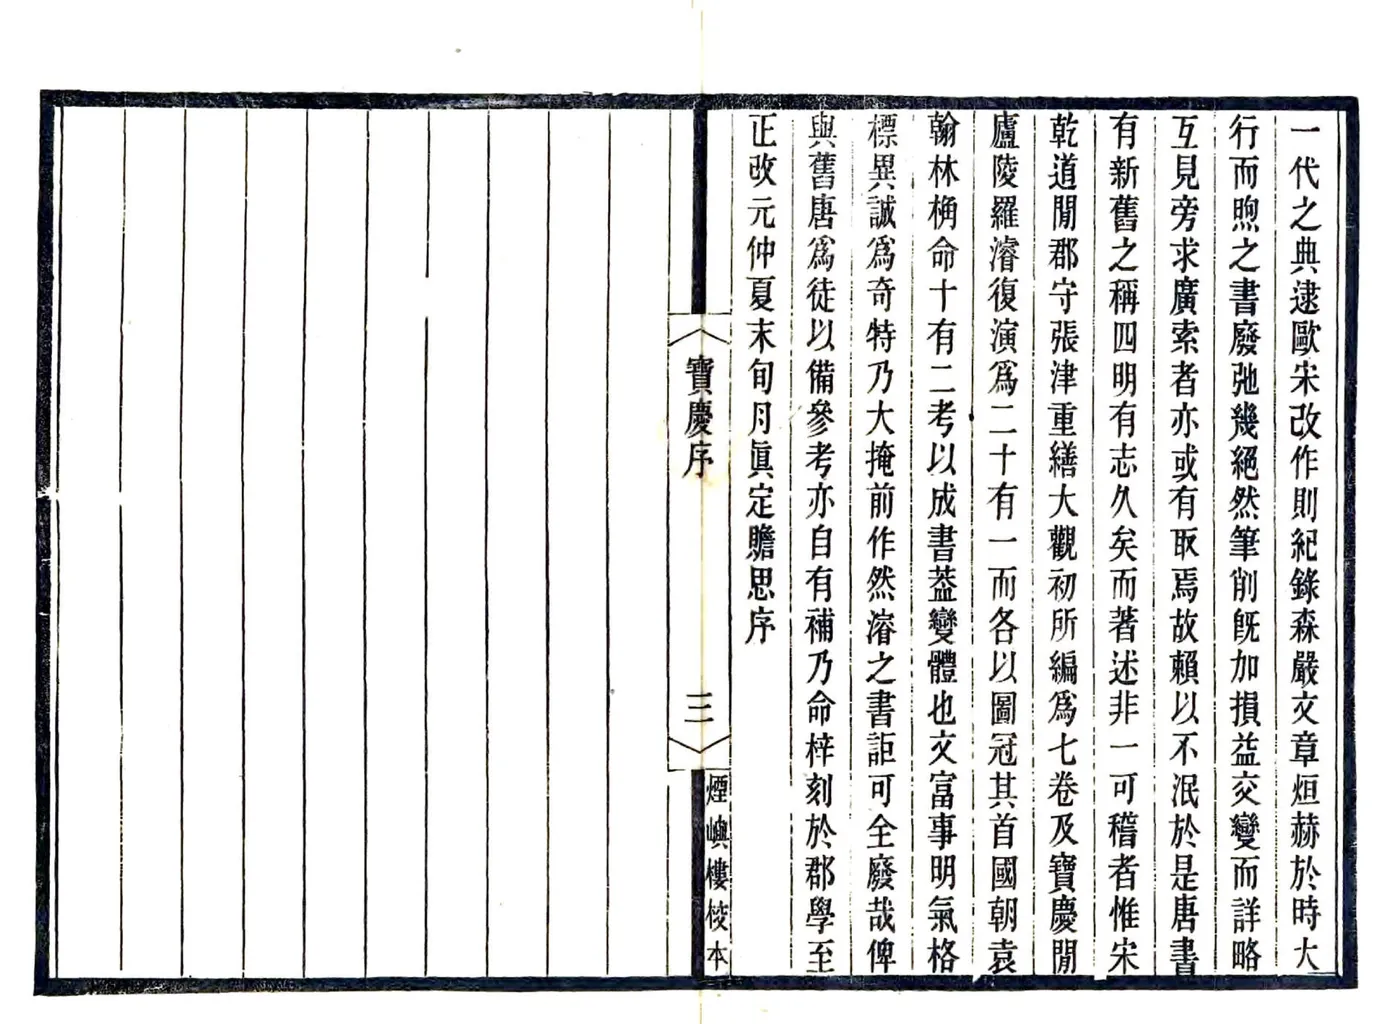 一代之典逮歐宋改作則紀錄森嚴文章烜赫於時大
行而煦之書廢弛幾絕然筆削既加損益交變而詳略
互見旁求廣索者亦或有取焉故賴以不泯於是唐書
有新舊之稱四明有志久矣而著述非一可稽者惟宋
乾道閒郡守張津重繕大觀初所編爲七卷及寶慶閒
廬陵羅濬復演爲二十有一而各以圖冠其首國朝袁
翰林桷命十有二考以成書蓋變體也文富事明氣格
標異誠爲奇特乃大掩前作然濬之書詎可全廢哉俾
與舊唐爲徒以備參考亦自有補乃命梓刻於郡學至
正改元仲夏末旬丹眞定贍思序
寶慶序
三
煙嶼樓校本